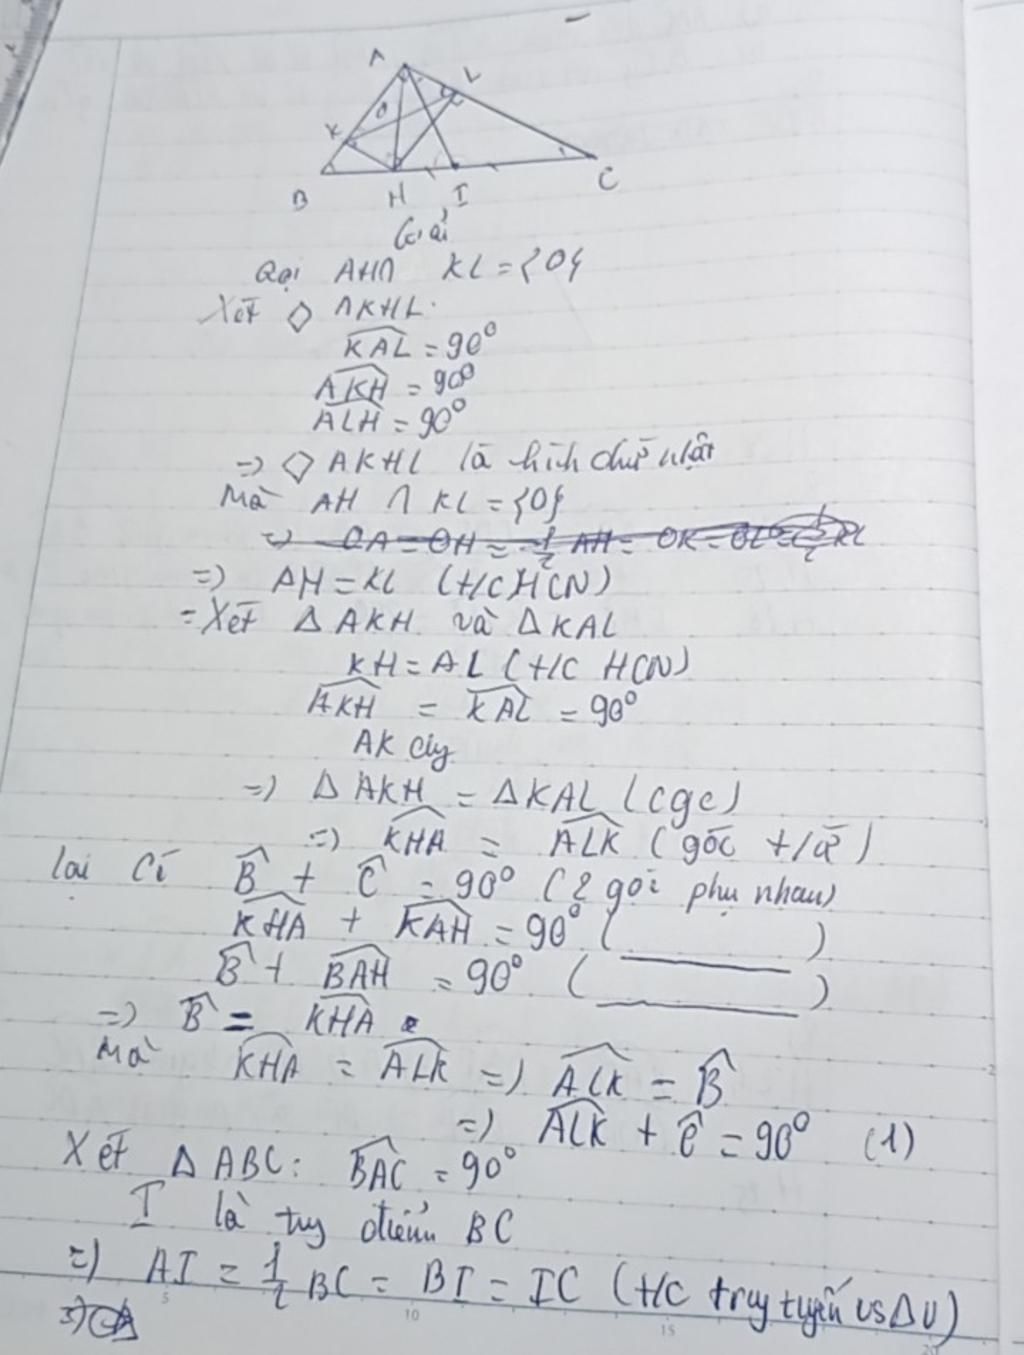 A
L
K
O
B
H
I
C
Giải
Gọi AH∩ KL = {O}
Xét ◇ AKHL.
KAL = 90°
AKH = 90°
ALH = 90°
=> ◇ AKHL là hình chữ nhật
Mà AH ∩ KL = {O}
=> OA = OH = 1/2 AH = OK = OL = 1/2 KL
=> AH = KL (t/c HCN)
=Xét Δ AKH và ΔKAL
KH = AL (t/c HCN)
AKH = KAL = 90°
AK chg
=> Δ AKH = ΔKAL (cgc)
=> KHA = ALK (góc t/ư)
lại có B + C = 90° (2 góc phụ nhau)
KHA + KAH = 90° ( )
B + BAH = 90° ( )
=> B = KHA
Mà KHA = ALK => ALK = B
=> ALK + C = 90° (1)
Xét Δ ABC: BAC = 90°
I là trg điểm BC
=> AI = 1/2 BC = BI = IC (t/c trug tuyến vs Δ V)
5
10
15
20